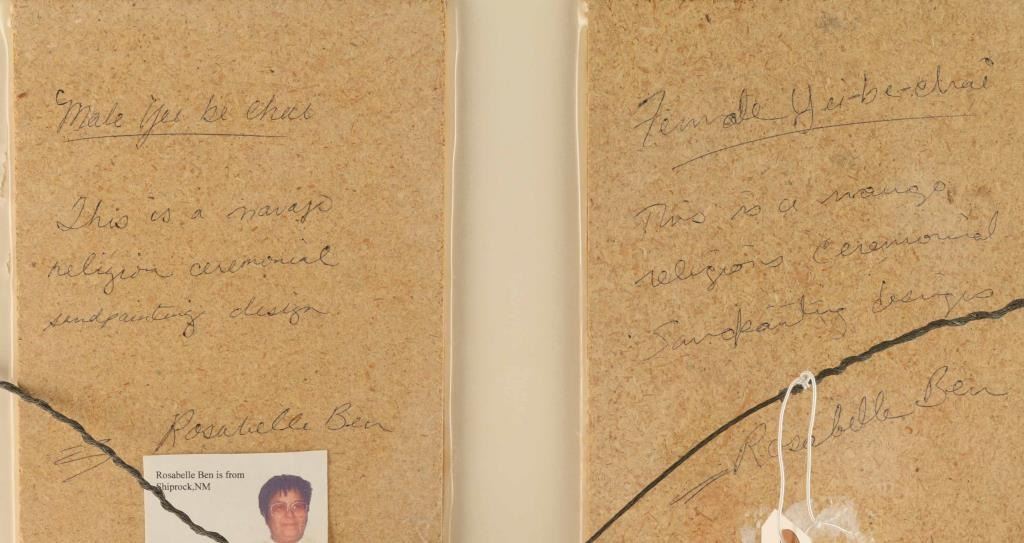 Male Yei be chai
This is a navajo
religion ceremonial
sandpainting design
Rosabelle Ben
Rosabelle Ben is from
Shiprock,NM
Female Yei-be-chai
This is a navajo
religions ceremonial
Sandpainting designs
Rosabelle Ben